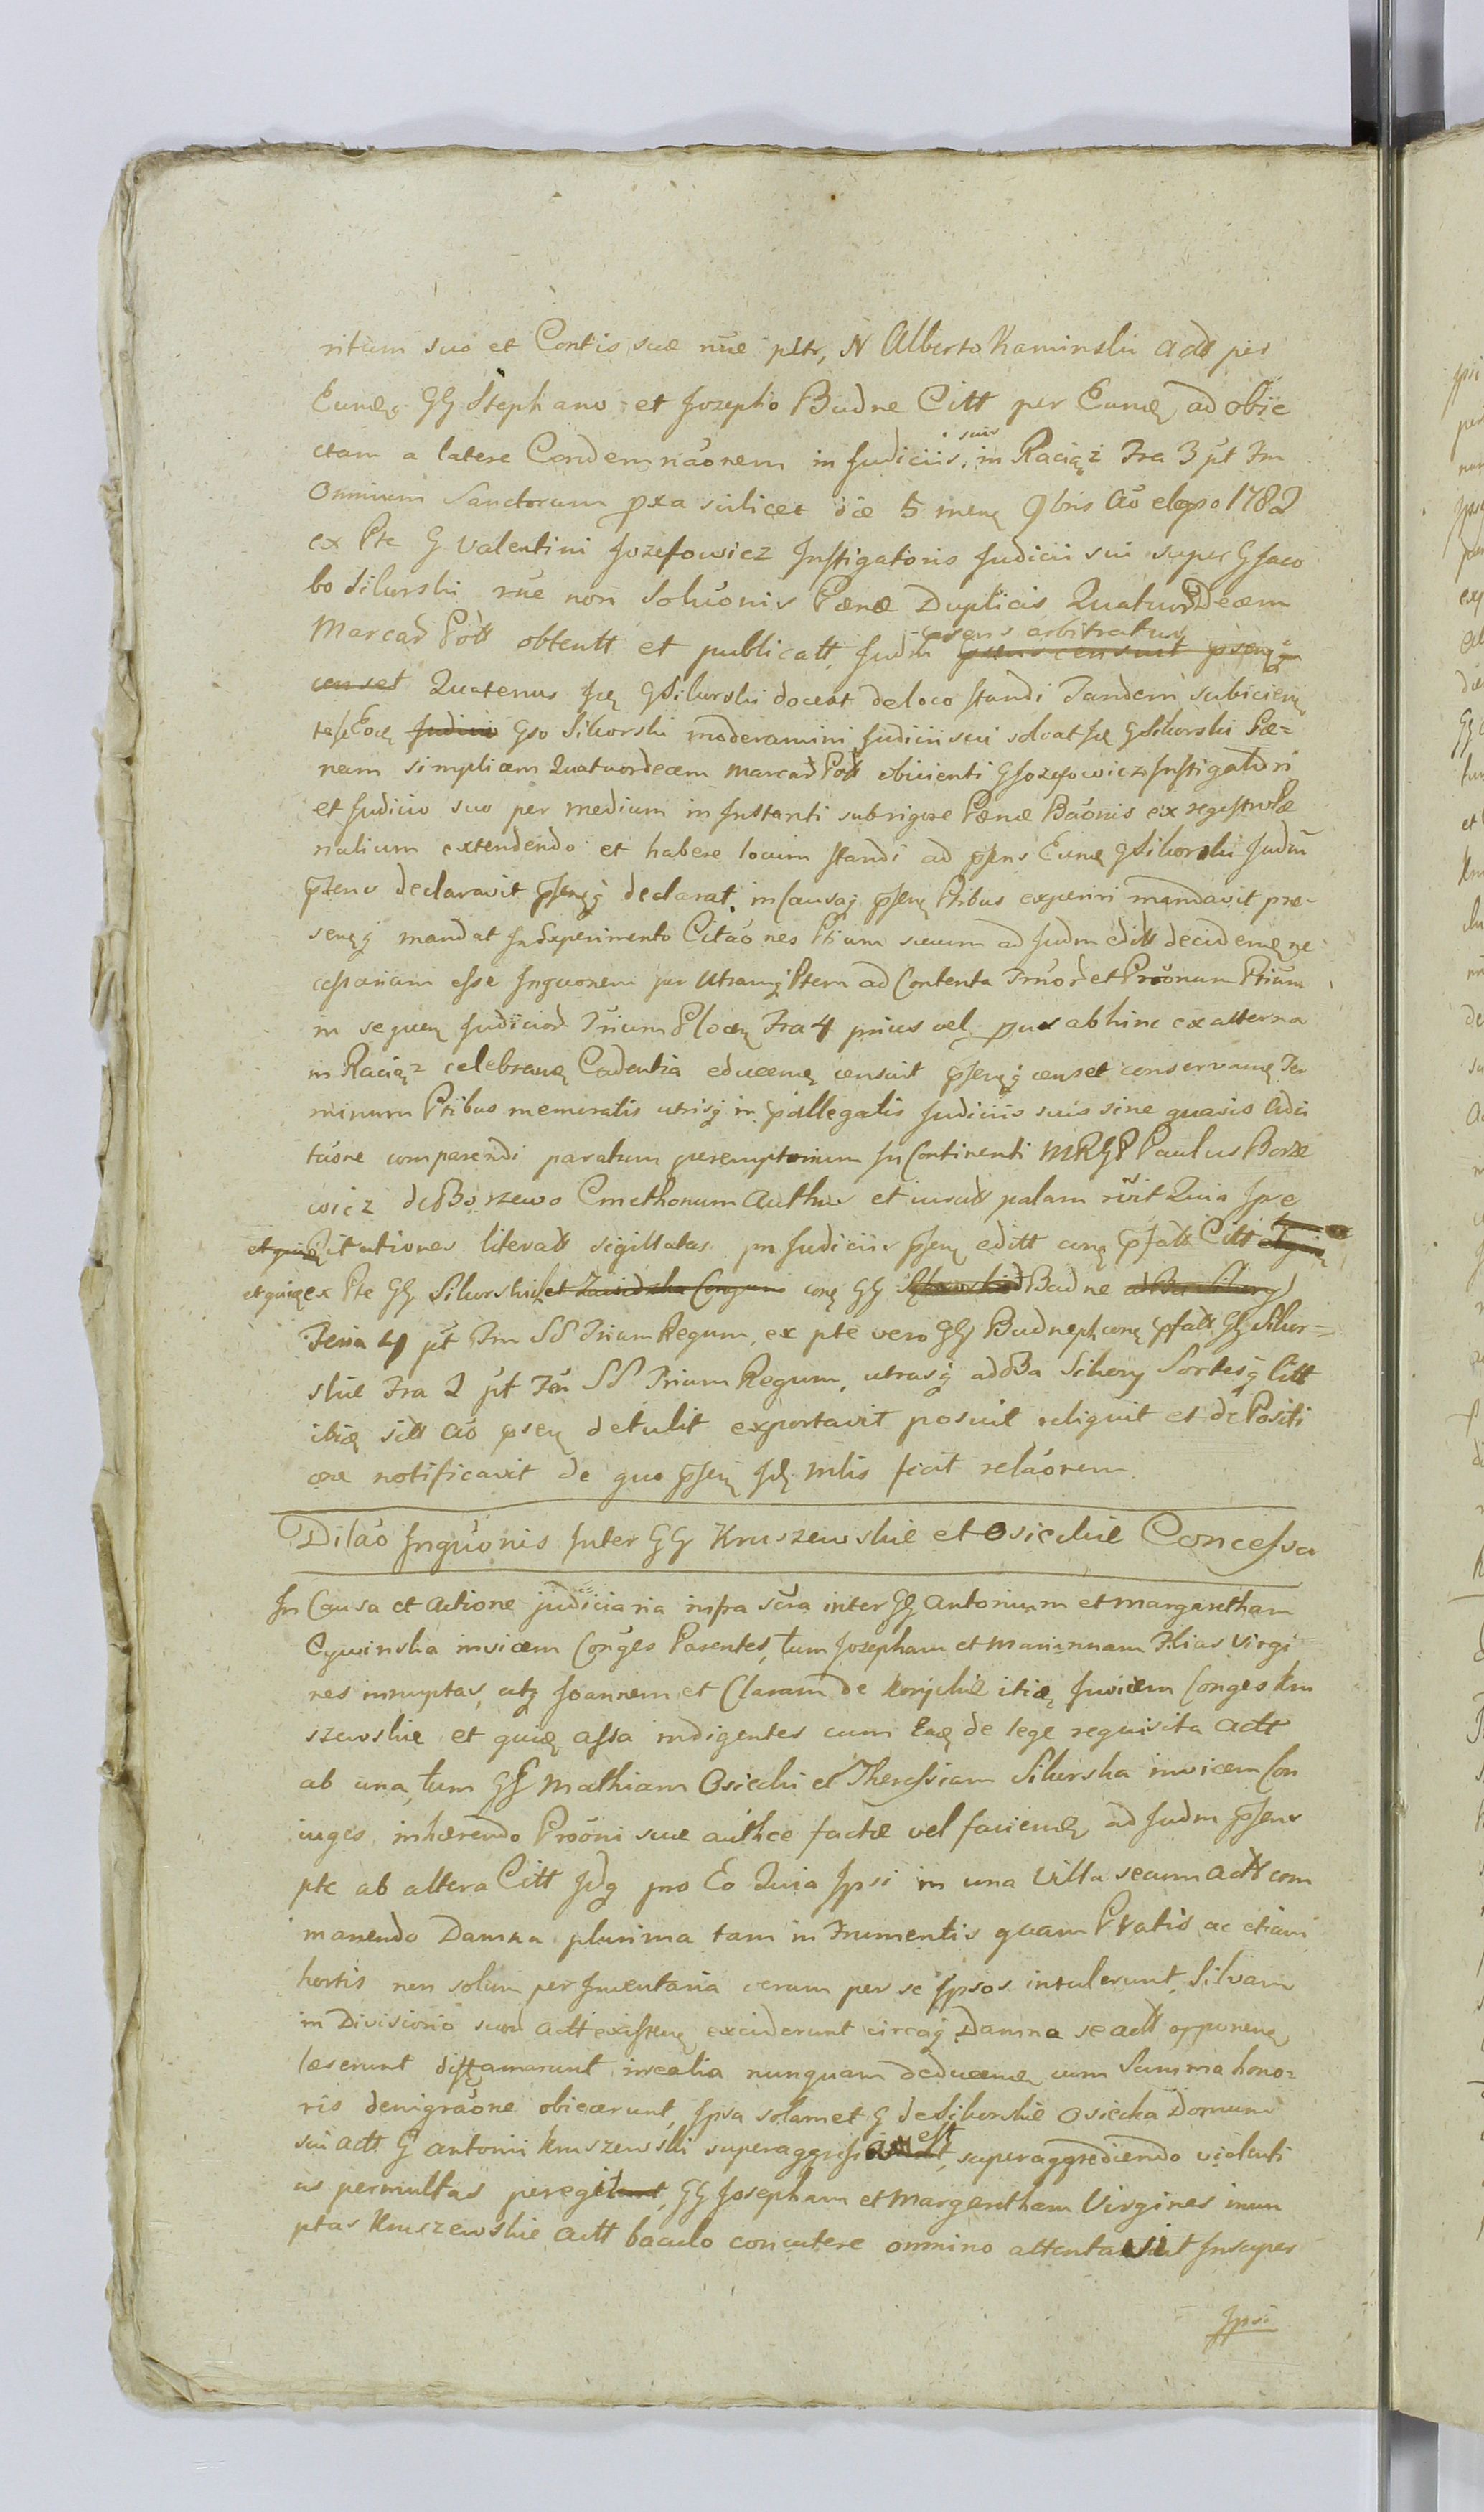 ritum suo et Contis suæ nue pltr, N Alberto Kaminski actt per
Eundę GG Stephano et Jozepho Budne Citt per Eundę ad obie
ctam a latere Condemnaonem in Judiciis suis in Raciąż Fra 3 pt Fm
Omnium Sanctorum pxa scilicet die 5 menę 9bris Ao elapso 1782
ex Pte G Valentini Jozefowicz Instigatoris Judicii sui super G Jaco
bo Sikorski rne non Soluonis Pænæ Duplicis Quatuordecem
Marcar Poll obtentt et publicatt Judm psens arbitratur psens censuit psensq
censet Quatenus Ipe G Sikorski doceat de loco standi Tandem subiicien
te se Eodę Judicio Gso Sikorski moderamini Judicii sui solvat Ipe G Sikorski Pæ=
nam simplicem Quatuordecem Marcar Poll obiicienti G Jozefowicz Instigatori
et Judicio suo per medium in Instanti sub rigore Pænæ Baonis ex regestro Pæ
nalium extendendo et habere locum standi ad psens Eundę G Sikorski Judm
psens declaravit psensq declarat, in Causaq psenę Ptibus experiri mandavit præ
senęq mandat In Experimento Citaones Ptium suarum ad Judm editt decidendę ne
cessariam esse Inquonem per Utramq Ptem ad Contenta Trnor et Proonum Ptium
in sequenę Judicior Trium Plocen Fra 4 prius vel pxa abhinc ex alterna
in Raciąż celebranę Cadentia educendę censuit psenęq censet conservandę Ter
minum Ptibus memoratis utrisq in pallegatis Judiciis suis sine quavis Adci
taone comparendi paratum peremptorium In Continenti MRGP Paulus Borze
wicz de Borzewo Cmethonum Author et iuratt palam rvit Quia Ipe
et quidę Citationes literatt sigillatas in Judiciis psenę editt conę pfatt Citt
et quidę ex Pte GG Sikorskich et Zawidzka Conjum conę GG Budne ad Bna Sikory
Feria 4 pt Fm SS Trium Regum, ex pte vero GG Budneph conę pfatt GG Sikor=
skie Fra 2 pt Fm SS Trium Regum, utrasq ad Bna Sikory Sortesq Citt
ibidę sitt ao psenę detulit exportavit posuit reliquit et de Positi
one notificavit de quo psenę Idę Mlis fecit relaonem
Dilao Inquonis Inter GG Kruszewskie et Osieckie Concessa
In Causa et Actione judiciaria infra scra inter GG Antonium et Margaretham
Cywinska invicem Conges Parentes, tum Josepham et Mariannam Filias Virgi
nes innuptas, atq Joannem et Claram de Korzyckie itidę Invicem Conges Kru
szewskie et quidę assa indigentes cum Eadę de lege requisita actt
ab una, tum GG Mathiam Osiecki et Theressiam Sikorska invicem Con
iuges inhærendo Prooni suæ authce factæ vel faciendę ad Judm psens
pte ab altera Citt Idq pro Eo Quia Ipsi in una Villa secum Actt com
manendo Damna plurima tam in Frumentis quam Pratis ac etiam
hortis non solum per Inventaria verum per se Ipsos intulerunt, Silvam
in Divisionio suor actt existenę exciderunt circaq Damna se actt opponenę
læserunt diffamarunt irrealia nunquam deducendę cum Summa hono=
ris denigraone obiecerunt, Ipsa solamet G de Sikorskie Osiecka Domum
sui actt G Antonii Kruszewski superaggressa est, superaggrediendo violenti
as permultas peregit, GG Josepham et Margaretham Virgines innu
ptas Kruszewskie actt baculo concutere omnino attentavit Insuper
Ipsi